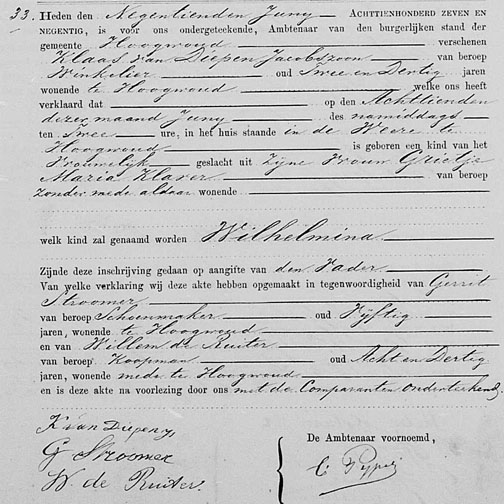 33. Heden den Negentienden Juny ACHTTIENHONDERD ZEVEN EN
NEGENTIG, is voor ons ondergeteekende, Ambtenaar van den burgerlijken stand der
gemeente Hoogwoud verschenen
Klaas van Diepen Jacobszoon van beroep
Winkelier oud Twee en Dertig jaren
wonende te Hoogwoud welke ons heeft
verklaard dat op den Achttienden
dezer maand Juny des namiddags
ten twee ure, in het huis staande in de Weere te
Hoogwoud is geboren een kind van het
Vrouwelyk geslacht uit Zyne Vrouw Grietje
Maria Klaver van beroep
zonder mede aldaar wonende
welk kind zal genaamd worden Wilhelmina
Zijnde deze inschrijving gedaan op aangifte van den Vader
Van welke verklaring wij deze akte hebben opgemaakt in tegenwoordigheid van Gerrit
Stroomer
van beroep Schoenmaker oud Vyftig
jaren, wonende te Hoogwoud
en van Willem de Ruiter
van beroep Koopman oud Acht en Dertig
jaren, wonende mede te Hoogwoud
en is deze akte na voorlezing door ons met de Comparanten onderteekend.
K van Diepen Jz
G Stroomer
W. de Ruiter.
De Ambtenaar voornoemd,